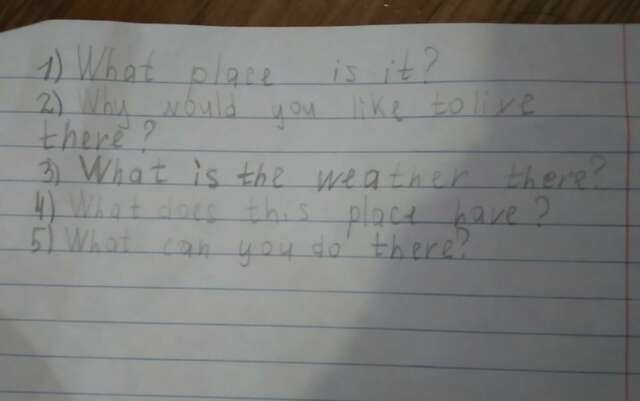 1) What place is it?
2) Why would you like to live
there?
3) What is the weather there?
4) What does this place have?
5) What can you do there?